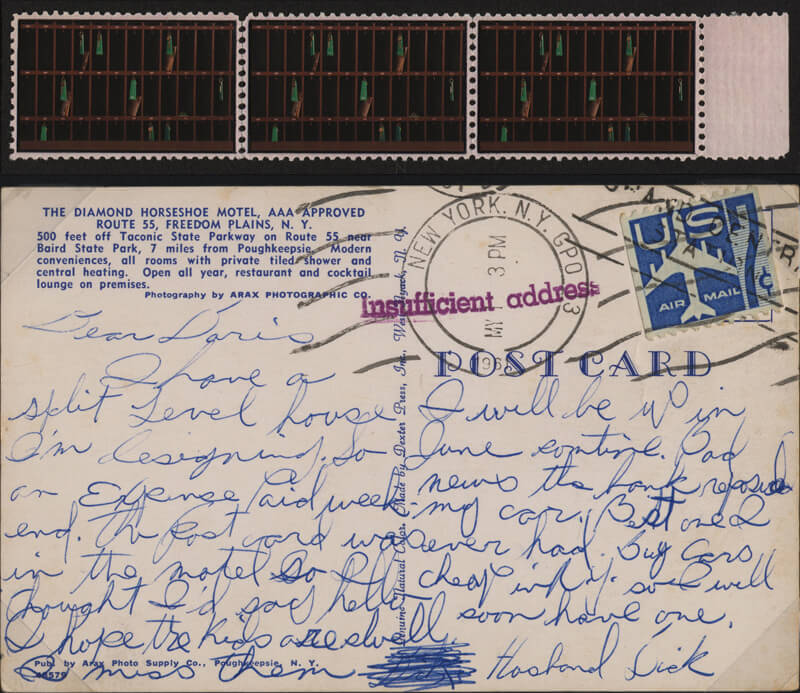 THE DIAMOND HORSESHOE MOTEL, AAA APPROVED
ROUTE 55, FREEDOM PLAINS, N. Y.
500 feet off Taconic State Parkway on Route 55 near
Baird State Park, 7 miles from Poughkeepsie. Modern
conveniences, all rooms with private tiled shower and
central heating. Open all year, restaurant and cocktail
lounge on premises.
Photography by ARAX PHOTOGRAPHIC CO.
Dear Doris
I have a
split Level house
I'm designing. So
an Expense Paid week-
end. The Post card was
in the motel So I
thought I'd say hello
I hope the kids are swell.
I miss them
Pub. by Arax Photo Supply Co., Poughkeepsie, N. Y.
48579
Genuine Natural Color. Made by Dexter Press, Inc., West Nyack, N. Y.
NEW YORK, N.Y. GPO
3 PM
MY
196
Insufficient address
US
7¢
AIR MAIL
POST CARD
I will be up in
June sometime. Bad
news the bank
my car. Best one I
ever had. But Cars
cheap in N.Y. so I will
soon have one.
Husband Dick